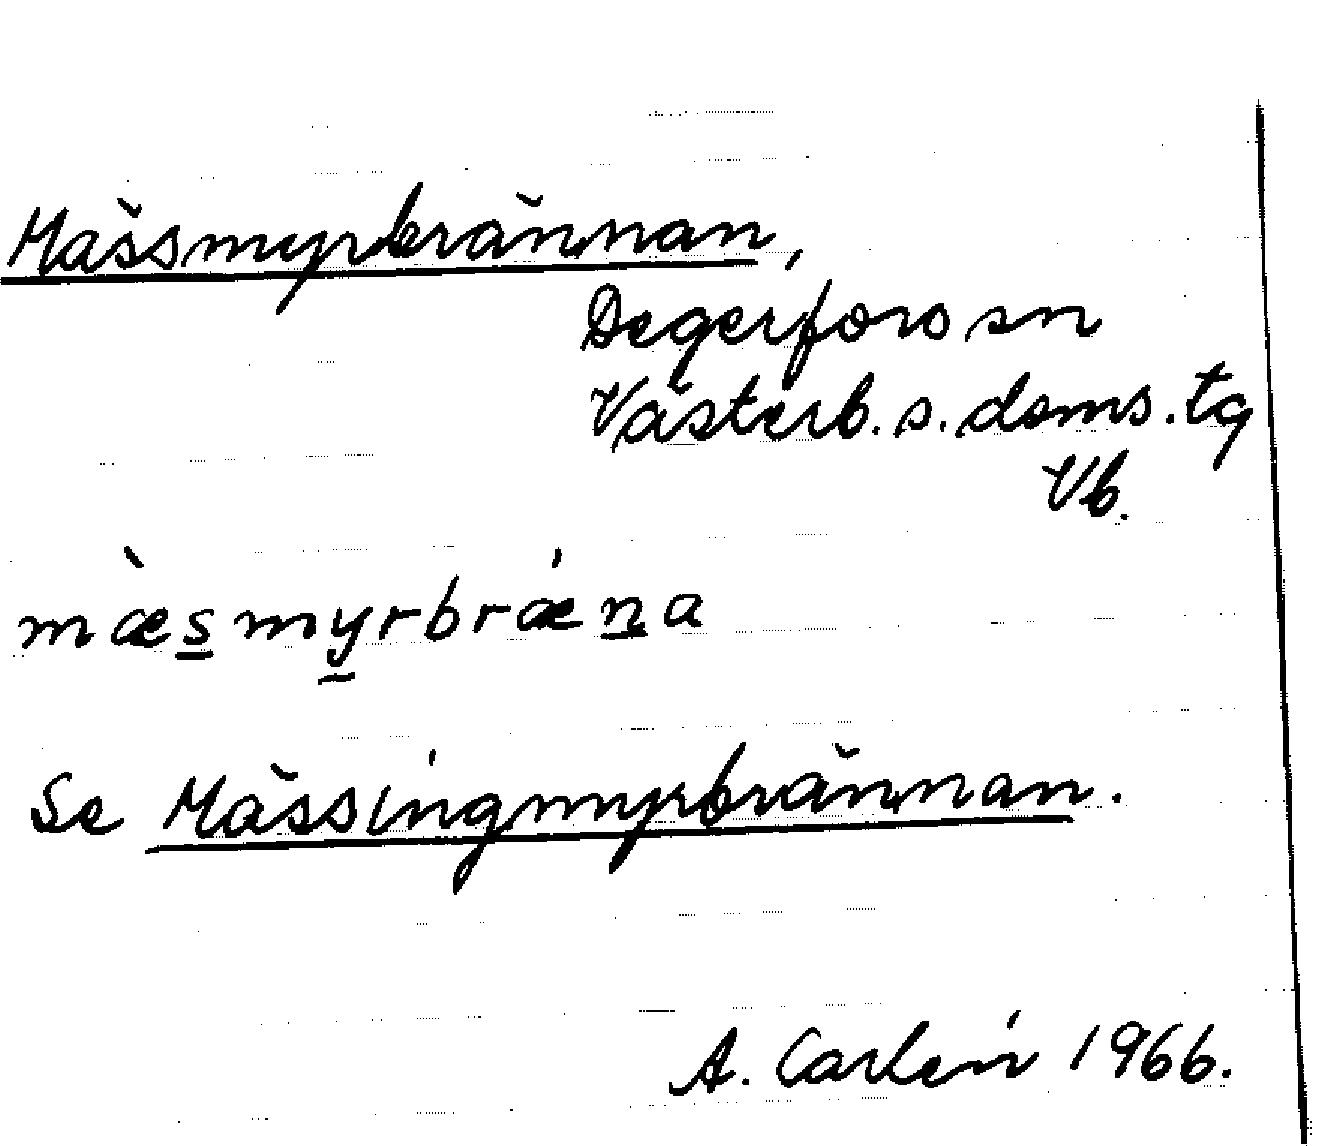 Mässmyrbrännan,
Degerfors sn
Västerb. s. doms. tg
Vb.
mæ̀s̲my̲rbrǽn̲a
Se Mässingmyrbrännan.
A. Carlén 1966.